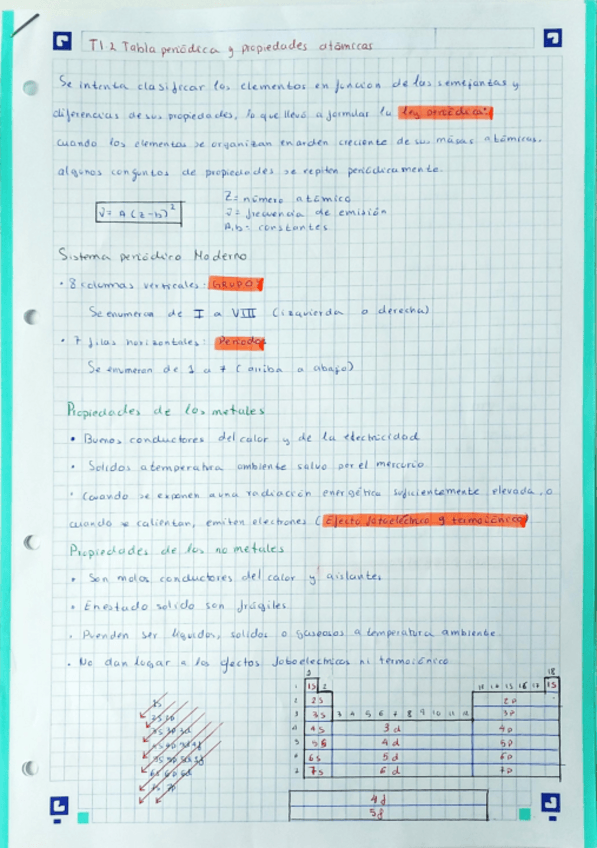 T1.2 Tabla periódica y propiedades atómicas
Se intenta clasificar los elementos en función de las semejanzas y
diferencias de sus propiedades, lo que llevó a formular la ley periódica:
cuando los elementos se organizan en orden creciente de sus masas atómicas,
algunos conjuntos de propiedades se repiten periódicamente.
Z= número atómico
ν̄ = A (z-b)²
ν̄= frecuencia de emisión
A,b: constantes
Sistema periódico Moderno
· 8 columnas verticales: GRUPOS
Se enumeran de I a VIII (izquierda a derecha)
· 7 filas horizontales: Periodos
Se enumeran de 1 a 7 (arriba a abajo)
Propiedades de los metales
· Buenos conductores del calor y de la electricidad
· Solidos a temperatura ambiente salvo por el mercurio
· Cuando se exponen a una radiación energética suficientemente elevada, o
cuando se calientan, emiten electrones (Efecto fotoeléctrico y termoiónico)
Propiedades de los no metales
· Son malos conductores del calor y aislantes
· En estado solido son frágiles
· Pueden ser liquidos, solidos o gaseosos a temperatura ambiente.
· No dan lugar a los efectos fotoelectricos ni termoiónico
18
1 1s 2 13 14 15 16 17 1s
2 2s 2p
3 3s 3 4 5 6 7 8 9 10 11 12 3p
4 4s 3d 4p
5 5s 4d 5p
6 6s 5d 6p
7 7s 6d 7p
4f
5f
1s
2s 2p
3s 3p 3d
4s 4p 4d 4f
5s 5p 5d 5f
6s 6p 6d
7s 7p